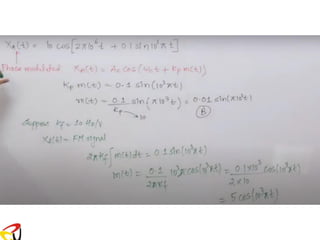 Xₐ(t) = 10 cos[2π10⁶t + 0.1 sin 10³πt]
Phase modulated Xₐ(t) = Ac cos(ωct + Kp m(t))
Kp m(t) = 0.1 sin(10³πt)
m(t) = 0.1/Kp sin(π10³t) = 0.01 sin(π10³t)
10
Suppose Kf = 10 Hz/v
Xₐ(t) = FM signal
2πKf ∫m(t)dt = 0.1 sin(10³πt)
m(t) = 0.1/2πKf 10³π cos(10³πt) = 0.1×10³/2×10 cos(10³πt)
= 5 cos(10³πt)